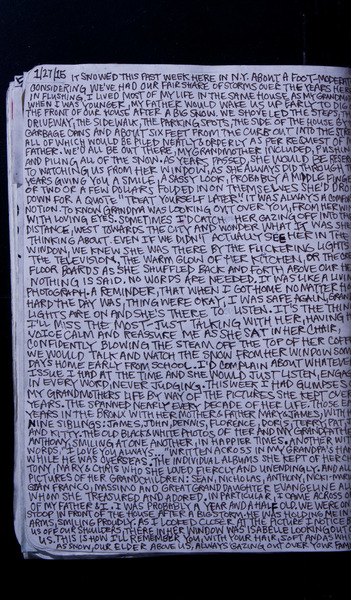 1/27/15 IT SNOWED THIS PAST WEEK HERE IN N.Y. ABOUT A FOOT-MODERAT
CONSIDERING WE'VE HAD OUR FAIR SHARE OF STORMS OVER THE YEARS HERE
IN FLUSHING. I LIVED MOST OF MY LIFE IN THE SAME HOUSE AS MY GRANDMO
WHEN I WAS YOUNGER, MY FATHER WOULD WAKE US UP EARLY TO DIG
THE FRONT OF OUR HOUSE AFTER A BIG SNOW. WE SHOVELED THE STEPS, TH
DRIVEWAY, THE SIDEWALK, THE PARKING SPOTS, THE SIDE OF THE HOUSE BY
GARBAGE CANS AND ABOUT SIX FEET FROM THE CURB OUT INTO THE STRE
ALL OF WHICH WOULD BE PILED NEATLY & ORDERLY AS PER REQUEST OF
FATHER. WE'D ALL BE OUT THERE, MY GRANDMOTHER INCLUDED, PUSHIN
AND PILING ALL OF THE SNOW. AS YEARS PASSED, SHE WOULD BE RESER
TO WATCHING US FROM HER WINDOW, AS SHE ALWAYS DID THROUGH T
YEARS GIVING YOU A SMILE, A SASSY LOOK, PROBABLY A MIDDLE FINGE
OR TWO OR A FEW DOLLARS FOLDED IN ON THEMSELVES SHE'D DRO
DOWN FOR A QUOTE "TREAT YOURSELF LATER." IT WAS ALWAYS A COMFO
NOTION TO KNOW GRANDMA WAS LOOKING OUT OVER YOU, FROM HER WI
WITH LOVING EYES. SOMETIMES I'D CATCH HER GAZING OFF INTO TH
DISTANCE, WEST TOWARDS THE CITY AND WONDER WHAT IT WAS SHE
THINKING ABOUT. EVEN IF WE DIDN'T ACTUALLY SEE HER IN THE
WINDOW, WE KNEW SHE WAS THERE BY THE FLICKERING LIGHTS
THE TELEVISION, THE WARM GLOW OF HER KITCHEN, OR THE CRE
FLOOR BOARDS AS SHE SHUFFLED BACK AND FORTH ABOVE OUR HE
NOTHING IS SAID, NO WORDS ARE NEEDED, IT WAS LIKE A LIVIN
PHOTOGRAPH, A REMINDER, THAT WHEN I GOT HOME NO MATTER HO
HARD THE DAY WAS, THING WERE OKAY, I WAS SAFE AGAIN, GRAN
LIGHTS ARE ON AND SHE'S THERE TO LISTEN. IT'S THE THIN
I'LL MISS THE MOST - JUST TALKING WITH HER, HAVING H
VOICE CALM AND REASSURE ME AS SHE SAT IN HER CHAIR,
CONFIDENTLY BLOWING THE STEAM OFF THE TOP OF HER COFF
WE WOULD TALK AND WATCH THE SNOW FROM HER WINDOW SOM
DAYS HOME EARLY FROM SCHOOL. I'D COMPLAIN ABOUT WHATEVE
ISSUE I HAD AT THE TIME AND SHE WOULD JUST LISTEN, ENGAG
IN EVERY WORD, NEVER JUDGING. THIS WEEK I HAD GLIMPSES O
MY GRANDMOTHERS LIFE BY WAY OF THE PICTURES SHE KEPT OVER
YEARS. THEY SPANNED NEARLY EVERY DECADE OF HER LIFE: THOSE EA
YEARS IN THE BRONX WITH HER MOTHER & FATHER MARY & JAMES, WITH H
NINE SIBLINGS: JAMES, JOHN, DENNIS, FLORENCE, DORIS, TERRY, PAT
AND KITTY. THE OLD BLACK & WHITE PHOTOS OF HER AND MY GRANDFATHE
ANTHONY, SMILING AT ONE ANOTHER IN HAPPIER TIMES. ANOTHER WIT
WORDS, "I LOVE YOU ALWAYS..." WRITTEN ACROSS IN MY GRANDPA'S HAN
WHILE HE WAS OVERSEAS. THE INDIVIDUAL ALBUMS SHE KEPT OF HER CH
TONY, MARY & CHRIS WHO SHE LOVED FIERCLY AND UNENDINGLY. AND ALL
PICTURES OF HER GRANDCHILDREN: SEAN, NICHOLAS, ANTHONY, NICKI-MARI
GIAN FRANCO, MASSIMO AND GREAT GRAND DAUGHTER EVANGELINE ALL
WHOM SHE TREASURED AND ADORED. IN PARTICULAR, I CAME ACROSS O
OF MY FATHER & I. I WAS PROBABLY A YEAR AND A HALF OLD. WE WERE ON
STOOP IN FRONT OF THE HOUSE AFTER A BIG STORM. HE WAS HOLDING ME IN
ARMS, SMILING PROUDLY. AS I LOOKED CLOSER AT THE PICTURE I NOTICE B
US OFF OUR SHOULDERS, THERE IN HER WINDOW WAS ISABELLE LOOKING OUT
US. THIS IS HOW I'LL REMEMBER YOU, WITH YOUR HAIR, SOFT AND AS WHI
AS SNOW, OUR ELDER ABOVE US, ALWAYS GAZING OUT OVER YOUR FAMI